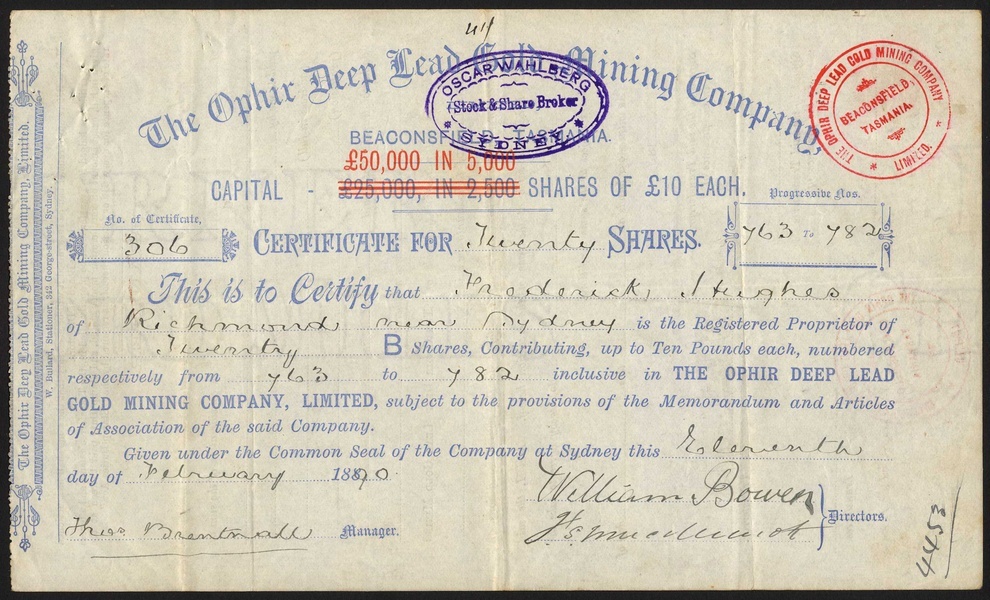 44
The Ophir Deep Lead Gold Mining Company,
OSCAR WAHLBERG
Stock & Share Broker
SYDNEY
THE OPHIR DEEP LEAD GOLD MINING COMPANY
LIMITED.
BEACONSFIELD,
TASMANIA.
BEACONSFIELD, TASMANIA.
£50,000 IN 5,000
CAPITAL - £25,000, IN 2,500 SHARES OF £10 EACH.
Progressive Nos.
No. of Certificate,
306 CERTIFICATE FOR Twenty SHARES. 763 To 782
This is to Certify that Frederick Hughes
of Richmond near Sydney is the Registered Proprietor of
Twenty B Shares, Contributing, up to Ten Pounds each, numbered
respectively from 763 to 782 inclusive in THE OPHIR DEEP LEAD
GOLD MINING COMPANY, LIMITED, subject to the provisions of the Memorandum and Articles
of Association of the said Company.
Given under the Common Seal of the Company at Sydney this Eleventh
day of February 1890.
William Bowen
Directors.
Thos Brentnall Manager.
4453
The Ophir Deep Lead Gold Mining Company, Limited.
W. Bullard, Stationer, 342 George-street, Sydney.